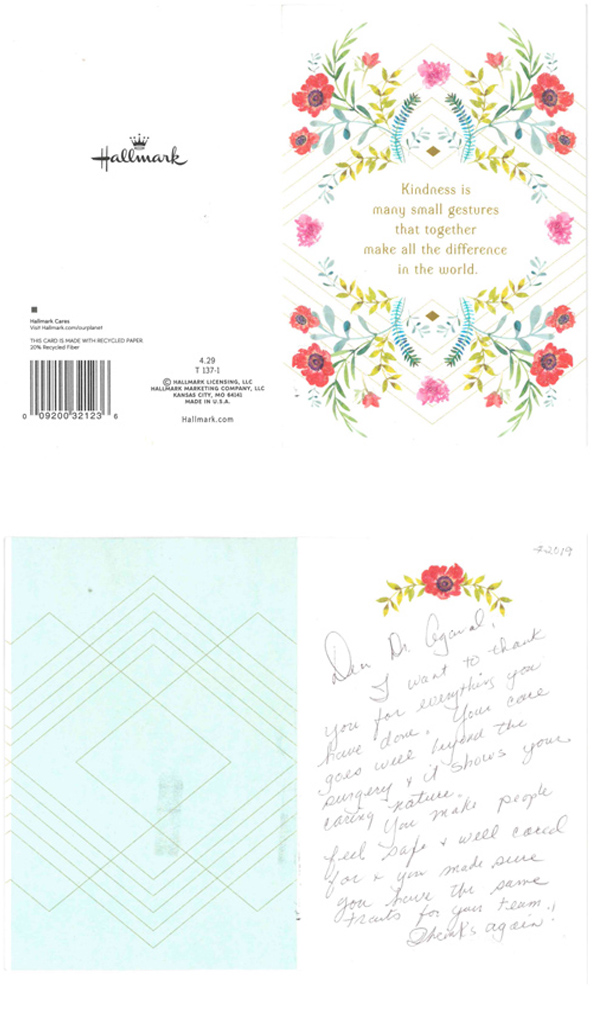 Hallmark
Kindness is
many small gestures
that together
make all the difference
in the world.
Hallmark Cares
Visit Hallmark.com/ourplanet
THIS CARD IS MADE WITH RECYCLED PAPER
20% Recycled Fiber
0 09200 32123 6
4.29
T 137-1
© HALLMARK LICENSING, LLC
HALLMARK MARKETING COMPANY, LLC
KANSAS CITY, MO 64141
MADE IN U.S.A.
Hallmark.com
2019
Dear Dr. Agarwal,
I want to thank
you for everything you
have done. Your care
goes well beyond the
surgery & it shows your
caring nature.
You make people
feel safe & well cared
for & you made sure
you have the same
traits for your team.
Thanks again!